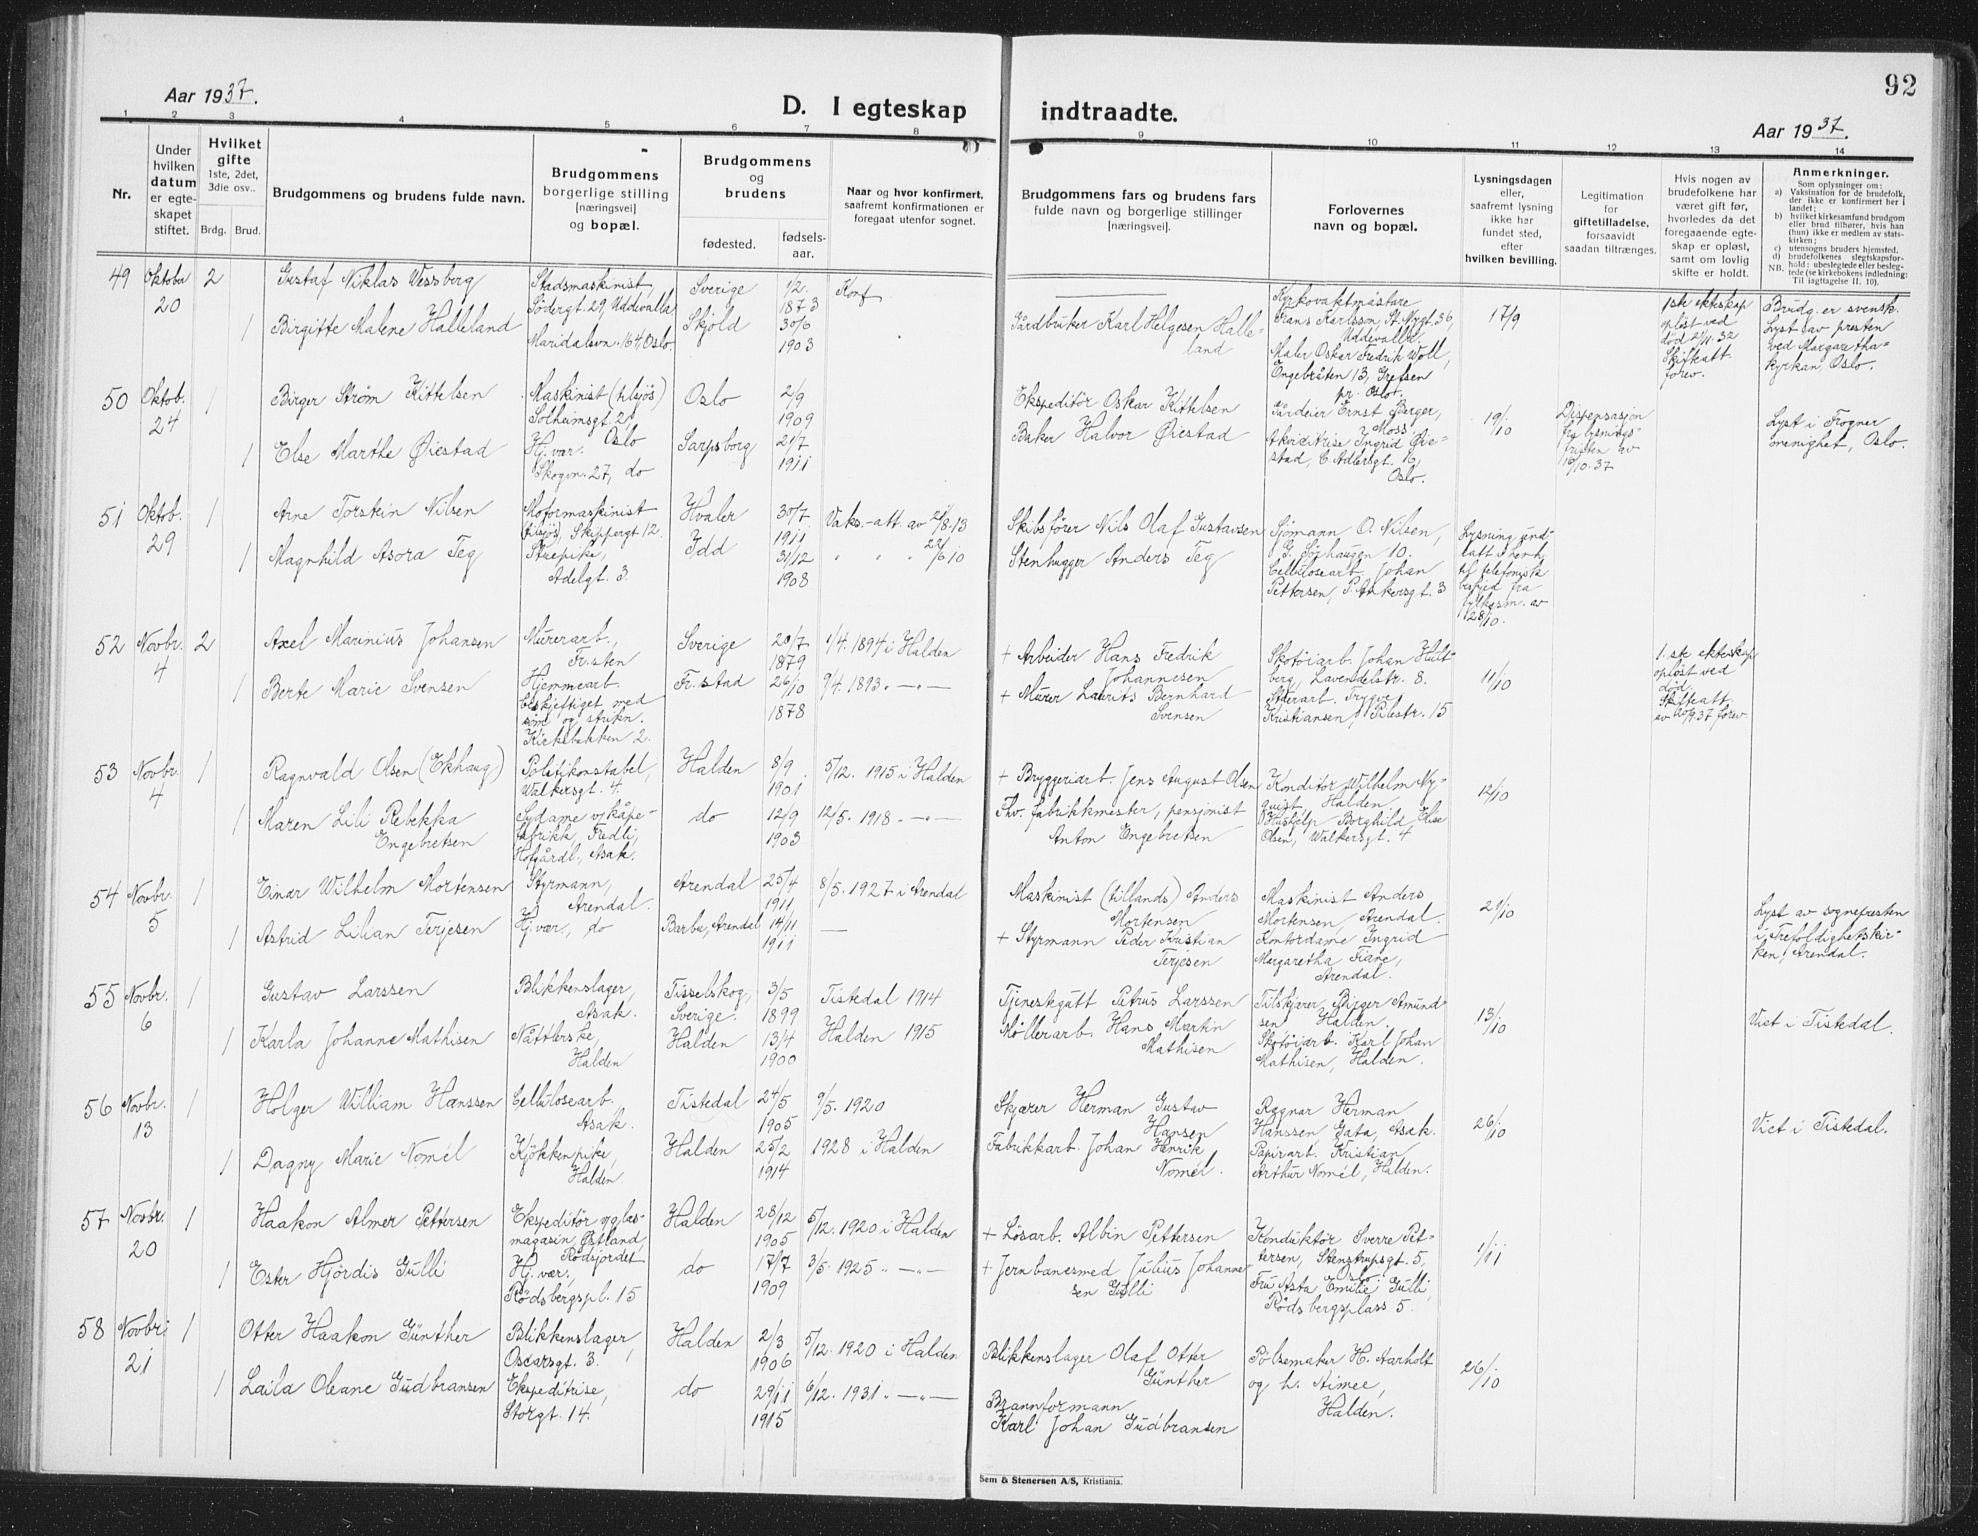 92
Aar 1937.
D. I egteskap indtraadte.
Aar 1937.
1 2 3 4 5 6 7 8 9 10 11 12 13 14
Nr.
Under
hvilken
datum
er egte-
skapet
stiftet.
Hvilket
gifte
1ste, 2det,
3die osv..
Brdg. Brud.
Brudgommens og brudens fulde navn.
Brudgommens
borgerlige stilling
[næringsvei]
og bopæl.
Brudgommens
og
brudens
fødested.
fødsels-
aar.
Naar og hvor konfirmert,
saafremt konfirmationen er
foregaat utenfor sognet.
Brudgommens fars og brudens fars
fulde navn og borgerlige stillinger
[næringsvei].
Forlovernes
navn og bopæl.
Lysningsdagen
eller,
saafremt lysning
ikke har
fundet sted,
efter
hvilken bevilling.
Legitimation
for
giftetilladelse,
forsaavidt
saadan tiltrænges.
Hvis nogen av
brudefolkene har
været gift før,
hvorledes da det
foregaaende egte-
skap er opløst,
samt om lovlig
skifte er holdt.
Anmerkninger.
Som oplysninger om:
a) Vaksination for de brudefolk,
der ikke er konfirmert her i
landet;
b) hvilket kirkesamfund brudgom
eller brud tilhører, hvis han
(hun) ikke er medlem av stats-
kirken;
c) utensogns bruders hjemsted.
d) brudefolkenes slegtskapsfor-
hold: ubeslegtede eller besleg-
NB. tede (se kirkebokens indledning:
Til iagttagelse 11. 10).
49 Oktober 20
2
Gustaf Niklas Wessberg
Stadsmaskinist
Södergt. 29, Uddevalla
Sverige
1/2.
1873
Konf
1
Birgitte Malene Halleland
Maridalsvn. 164, Oslo.
Skjold
30/6
1903
Gårdbruker Karl Helgesen Halle-
land
Kyrkovaktmästare
Frans Karlsson, St. Nygt. 36,
Uddevalla.
Maler Oskar Fredrik Woll,
Engebråten 13, Grefsen
pr. Oslo.
17/9
1ste ekteskap
opløst ved
død 2/11.32
Skifteatt.
forev.
Brudg. er svensk.
Lyst av presten
ved Margaretha-
kyrkan, Oslo.
50 Oktob. 24
1
Birger Strøm Kittelsen
Maskinist (tilsjøs)
Solheimsgt. 2,
Oslo
Oslo
2/9
1909
1
Else Marthe Øiestad
Hj.vær.
Skogvn. 27, do
Sarpsborg
21/7
1911
Ekspeditør Oskar Kittelsen
Baker Halvor Øiestad
Gårdeier Ernst Berger,
Moss
Akvisitrise Ingrid Øie-
stad, C. Adlersgt. 10,
Oslo.
19/10
Dispensasjon
fra lysnings-
fristen av
16/10.37
Lyst i Frogner
menighet, Oslo.
51 Oktob. 29
1
Arne Torstein Nilsen
Motormaskinist
(tilsjøs), Skippergt. 12.
Hvaler
30/7
1911
Vaks.-att. av 21/8.13
1
Magnhild Asora Teg
Strepike,
Adelgt. 3.
Idd
31/12
1908
" " " 22/6 10
Skibsfører Nils Olaf Gustavsen
Stenhugger Anders Teg
Sjømann O. Nilsen,
G. Sørhaugen 10.
Cellulosearb. Johan
Pettersen, P. Ankersgt. 3
Lysning und-
latt i henh.
til telefonisk
beskjed fra
fylkesm. av
28/10.
52 Novbr. 4
2
Axel Marinius Johansen
Murerarb.,
Fr.sten
Sverige
20/7
1879
1/4. 1894 i Halden
1
Berte Marie Svensen
Hjemmearb.
beskjeftiget med
søm og strikn.
Kirkebakken 2.
Fr.stad
26/10
1878
9/4. 1893 " — " —
+ Arbeider Hans Fredrik
Johannesen
+ Murer Laurits Bernhard
Svensen
Skotøiarb. Johan Hult-
berg, Lavendelstr. 8.
Stenarb. Trygve
Kristiansen, Pilestr. 15
11/10
1.ste ekteskap
opløst ved
død.
Skifteatt.
av 20/9.37 forev.
53 Novbr. 4
1
Ragnvald Olsen (Ekhaug)
Politikonstabel,
Walkersgt. 4.
Halden
8/9
1901
5/12. 1915 i Halden
1
Maren Lili Rebekka
Engebretsen
Sydame v/kåpe-
fabrikk, Fredli,
Hofgårdl., Asak.
do
12/9
1903
12/5. 1918 — " —
+ Bryggeriarb. Jens August Olsen
Fhv. fabrikkmester, pensjonist
Anton Engebretsen
Konditor Wilhelm Ny-
quist, Halden.
Hushjelp Borghild Elise
Olsen, Walkersgt. 4
12/10
54 Novbr. 5
1
Einar Wilhelm Mortensen
Styrmann,
Arendal.
Arendal
25/4
1911
8/5. 1927 i Arendal
1
Astrid Lilian Terjesen
Hj.vær., do
Barbu, Arendal
14/11
1911
—
Maskinist (tillands) Anders
Mortensen
+ Styrmann Peder Kristian
Terjesen
Maskinist Anders
Mortensen, Arendal.
Kontordame Ingrid
Margaretha Fiane,
Arendal.
21/10
Lyst av sognepresten
i Trefoldighetskir-
ken, Arendal.
55 Novbr. 6
1
Gustav Larssen
Blikkenslager,
Asak.
Tisselskog,
Sverige.
3/5
1899
Tistedal 1914
1
Karla Johanne Mathisen
Nåtlerske,
Halden
Halden
13/4
1900
Halden 1915
Tjenestgutt Petrus Larssen
Møllerarb. Hans Martin
Mathisen
Tilskjærer Birger Amund-
sen Halden.
Skotøiarb. Karl Johan
Mathisen, Halden.
13/10
Viet i Tistedal.
56 Novbr. 13
1
Holger William Hanssen
Cellulosearb.
Asak.
Tistedal
24/5
1905
9/5. 1920
1
Dagny Marie Nomél
Kjøkkenpike,
Halden.
Halden
25/2
1914
1928 i Halden
Skjærer Herman Gustav
Hansen
Fabrikkarb. Johan Henrik
Nomél.
Ragnar Herman
Hanssen, Gata, Asak.
Papirarb. Kristian
Arthur Nomél, Halden.
26/10
Viet i Tistedal.
57 Novbr. 20
1
Haakon Almer Pettersen
Ekspeditør v/glas-
magasin, Østland,
Rødsjordet
Halden
28/12
1905
5/12. 1920 i Halden
1
Ester Hjørdis Gulli
Hj.vær,
Rødsbergspl. 15
do
17/7
1909
3/5. 1925 " — " —
+ Løsarb. Albin Pettersen
+ Jernbanesmed Julius Johanne-
sen Gulli
Konduktør Sverre Pet-
tersen, Stenstrupsgt. 5,
Oslo.
Fru Asta Emilie Gulli,
Rødsbergsplass 5.
1/11
58 Novbr. 21
1
Otter Haakon Günther
Blikkenslager,
Oscarsgt. 3.
Halden
2/3
1906
5/12. 1920 i Halden
1
Laila Oleane Gudbransen
Ekspeditrise,
Storgt. 14.
do
29/11
1915
6/12. 1931 " — " —
Blikkenslager Olaf Otter
Günther
Brannformann
Karl Johan Gudbransen
Pølsemaker H. Aarholt
og h. Aimee,
Halden.
26/10
Sem & Stenersen A/S, Kristiania.